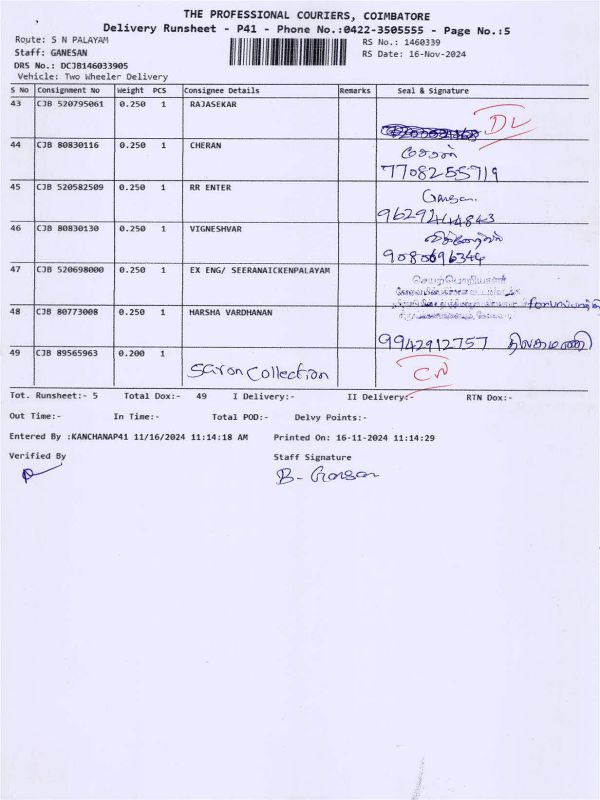 THE PROFESSIONAL COURIERS, COIMBATORE
Delivery Runsheet - P41 - Phone No.:0422-3505555 - Page No.:5
Route: S N PALAYAM RS No.: 1460339
Staff: GANESAN RS Date: 16-Nov-2024
DRS No.: DCJB146033905
Vehicle: Two Wheeler Delivery
S No Consignment No Weight PCS Consignee Details Remarks Seal & Signature
43 CJB 520795061 0.250 1 RAJASEKAR
DL
44 CJB 80830116 0.250 1 CHERAN
7708255719
45 CJB 520582509 0.250 1 RR ENTER
9629244843
46 CJB 80830130 0.250 1 VIGNESHVAR
9080696344
47 CJB 520698000 0.250 1 EX ENG/ SEERANAICKENPALAYAM
செயற்பொறியாளர்
48 CJB 80773008 0.250 1 HARSHA VARDHANAN
9942912757 திலகமணி
49 CJB 89565963 0.200 1
Saron Collection
Tot. Runsheet:- 5 Total Dox:- 49 I Delivery:- II Delivery:- RTN Dox:-
Out Time:- In Time:- Total POD:- Delvy Points:-
Entered By :KANCHANAP41 11/16/2024 11:14:18 AM Printed On: 16-11-2024 11:14:29
Verified By Staff Signature